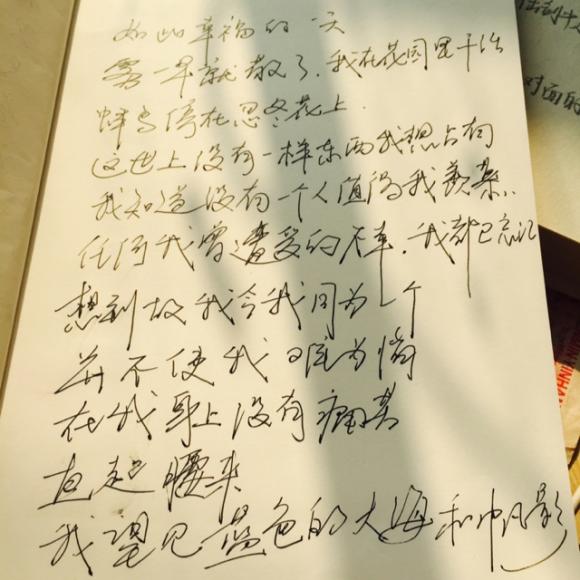 如此幸福的一天
雾一早就散了，我在花园里干活
蜂鸟停在忍冬花上．
这世上没有一样东西我想占有
我知道没有一个人值得我羡慕．
任何我曾遭受的不幸，我都已忘记
想到故我今我同为一个
并不使我难为情
在我身上没有痛苦
直起腰来
我望见蓝色的大海和帆影
对面的